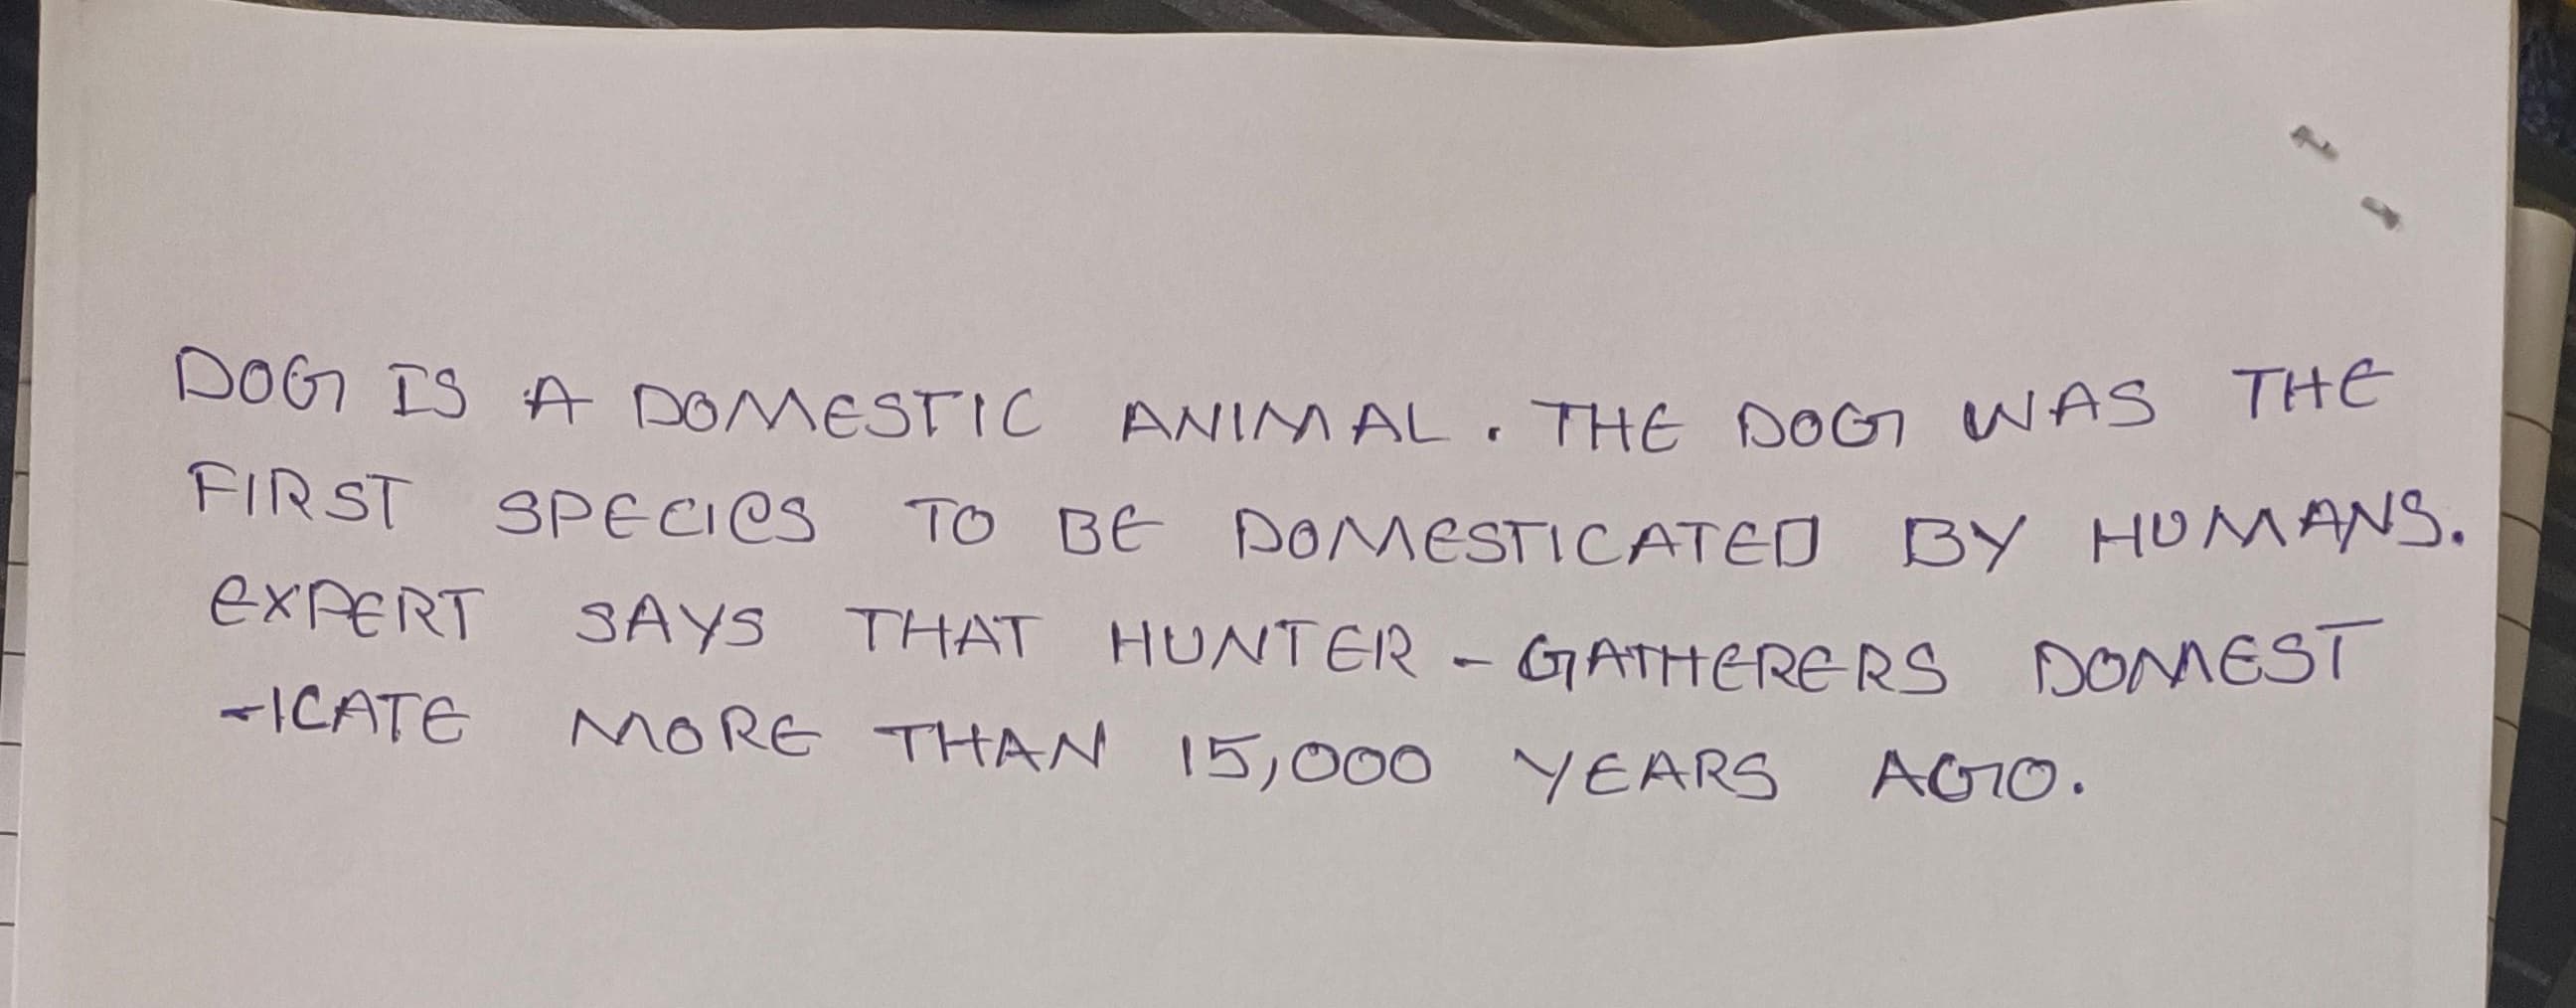 DOG IS A DOMESTIC ANIMAL. THE DOG WAS THE
FIRST SPECIeS TO BE DOMESTICATED BY HUMANS.
EXPERT SAYS THAT HUNTER-GATHERERS DOMEST
-ICATE MORE THAN 15,000 YEARS AGO.